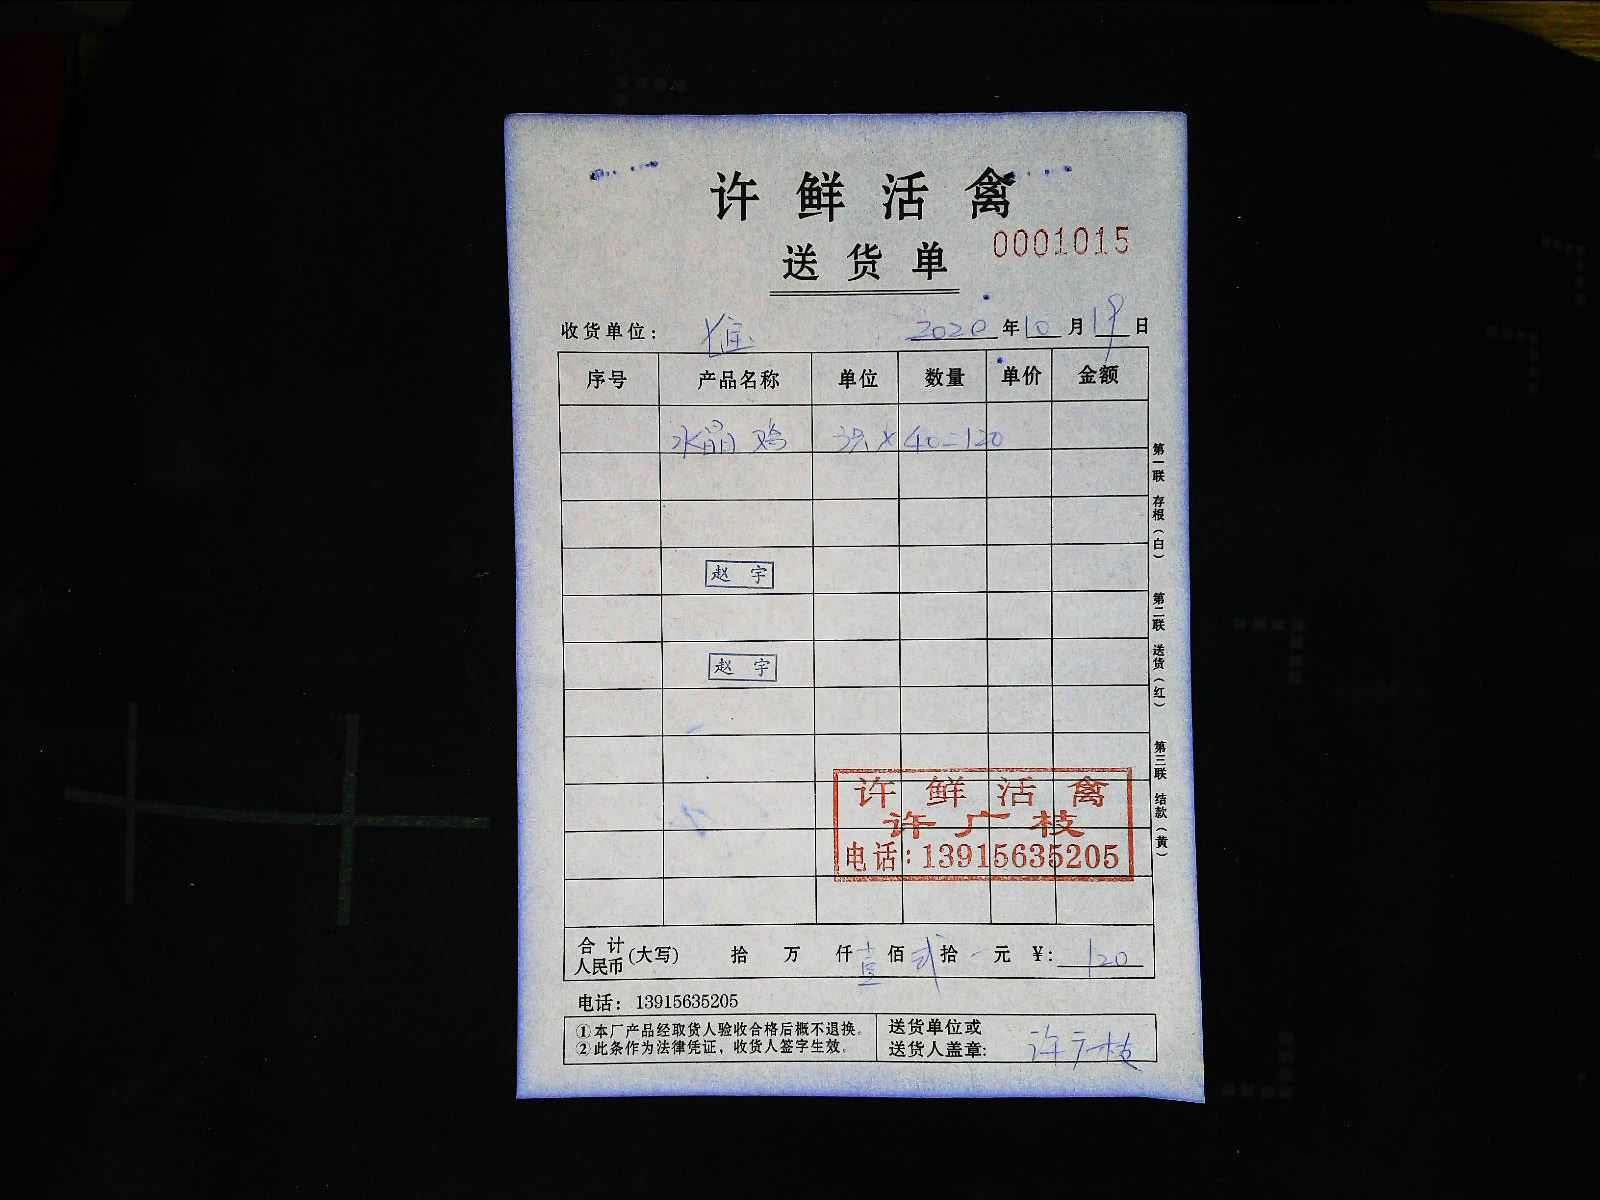 许鲜活禽
送货单 0001015
收货单位： 2020年10月19日
序号 产品名称 单位 数量 单价 金额
水晶鸡 3只×40=120
赵宇
赵宇
许鲜活禽
许广枝
电话：13915635205
合计人民币（大写） 拾 万 仟壹佰贰拾 元 ¥：120
电话：13915635205
①本厂产品经取货人验收合格后概不退换。
②此条作为法律凭证，收货人签字生效。
送货单位或
送货人盖章：许广枝
第一联 存根（白） 第二联 送货（红） 第三联 结款（黄）